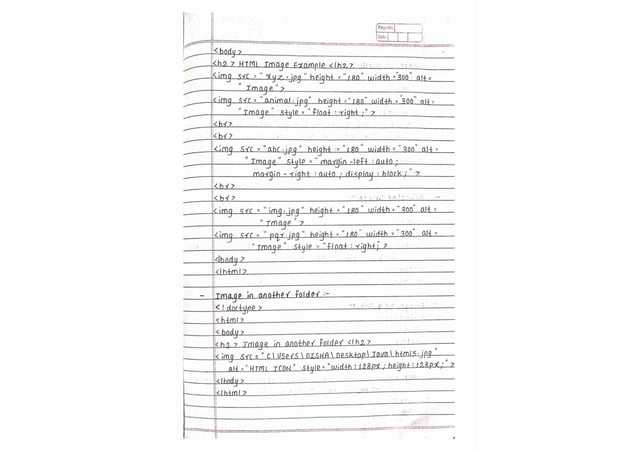 Page No.
Date
<body>
<h2> HTML Image Example </h2>
<img src = "xyz.jpg" height = "180" width = "300" alt =
"Image">
<img src = "animal.jpg" height = "180" width = "300" alt =
"Image" style = "float : right ;">
<br>
<br>
<img src = "abc.jpg" height = "180" width = "300" alt =
"Image" style = "margin-left : auto ;
margin-right : auto ; display : block ;">
<br>
<br>
<img src = "img.jpg" height = "180" width = "300" alt =
"Image">
<img src = "pqr.jpg" height = "180" width = "300" alt =
"Image" style = "float : right;">
</body>
</html>
- Image in another folder :-
<! doctype>
<html>
<body>
<h2> Image in another folder </h2>
<img src = "C\Users\DISHA\Desktop\Java\html5.jpg"
alt = "HTML ICON" style = "width : 128px ; height : 128px ;">
</body>
</html>